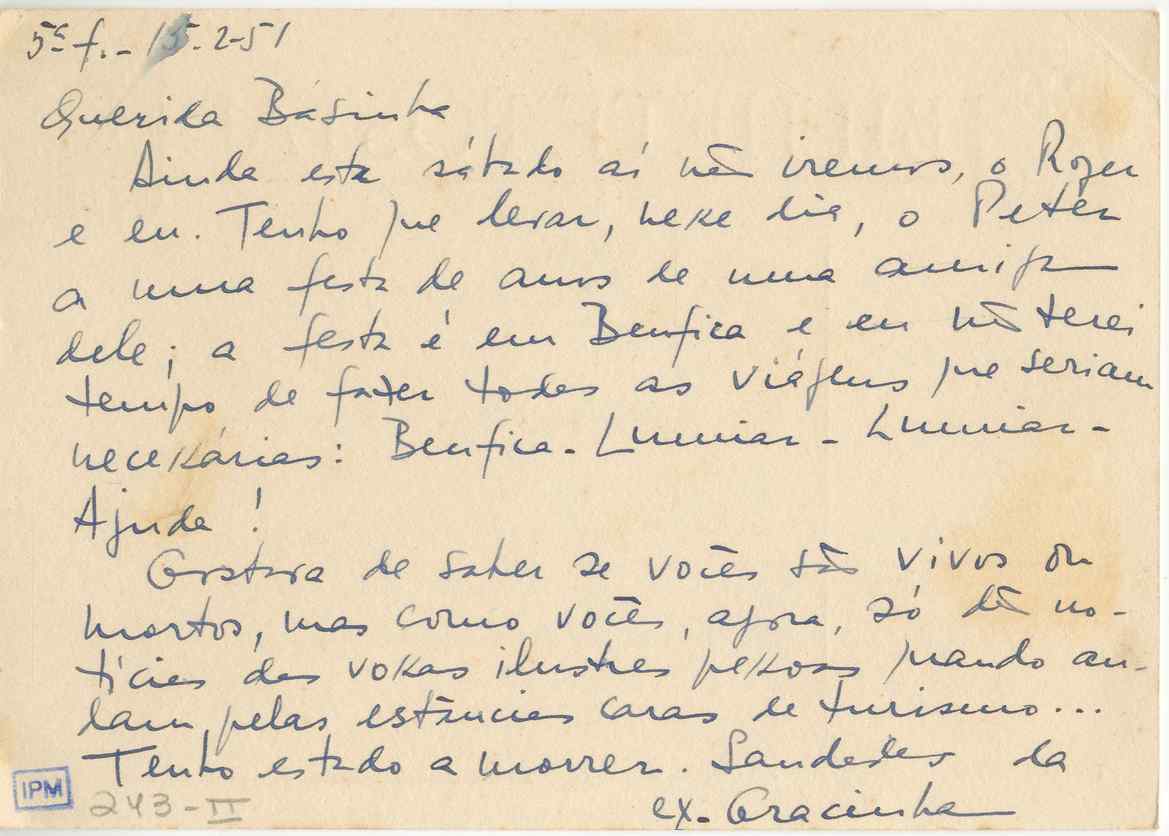 5ª f. - 15-2-51
Querida Básinha
Ainda este sábado aí não iremos, o Roger
e eu. Tenho que levar, nesse dia, o Peter
a uma festa de anos de uma amiga
dele; a festa é em Benfica e eu não terei
tempo de fazer todas as viágens que seriam
necessárias: Benfica - Lumiar - Lumiar -
Ajuda!
Gostava de saber se vocês são vivos ou
mortos, mas como vocês, agora, só dão no-
tícias das vossas ilustres pessoas quando an-
dam, pelas estâncias caras de turismo...
Tenho estado a morrer. Saudades da
ex-Gracinha
IPM
243-II